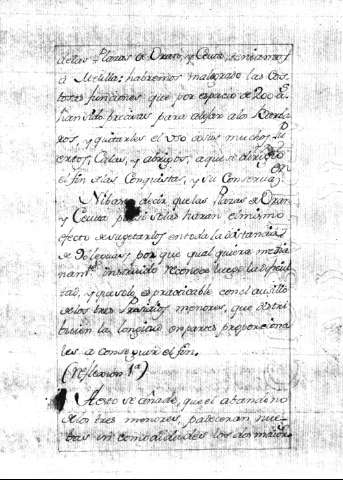 de las Plazas de Oran, y Ceuta, contamos
á Melilla: habremos malogrado las Cos-
tosas funciones que por espacio de 200 a.s
han sido precisas para alejar a los Barba-
ros, y quitarles el uso de sus muchos Pu
ertos, Calas, y abrigos, a que se dirigió
el fin de las Conquistas, y su Conservaz.on
Ni basta decir que las Plazas de Oran
y Ceuta por si solas haran el mismo
efecto de sugetarlos en toda la distancia
de leguas, por que qual quiera media
nam.te instruido reconoce luego la dificul
tad, y que solo es practicable con el auxilio
de los tres Presidios menores, que distri
buien la longitud en partes proporciona
les a conseguir el fin.
(Reflexion 1.a)
A esto se añade, que el abandono
de los tres menores, padeceran nue-
bas incomodidades los dos maiores